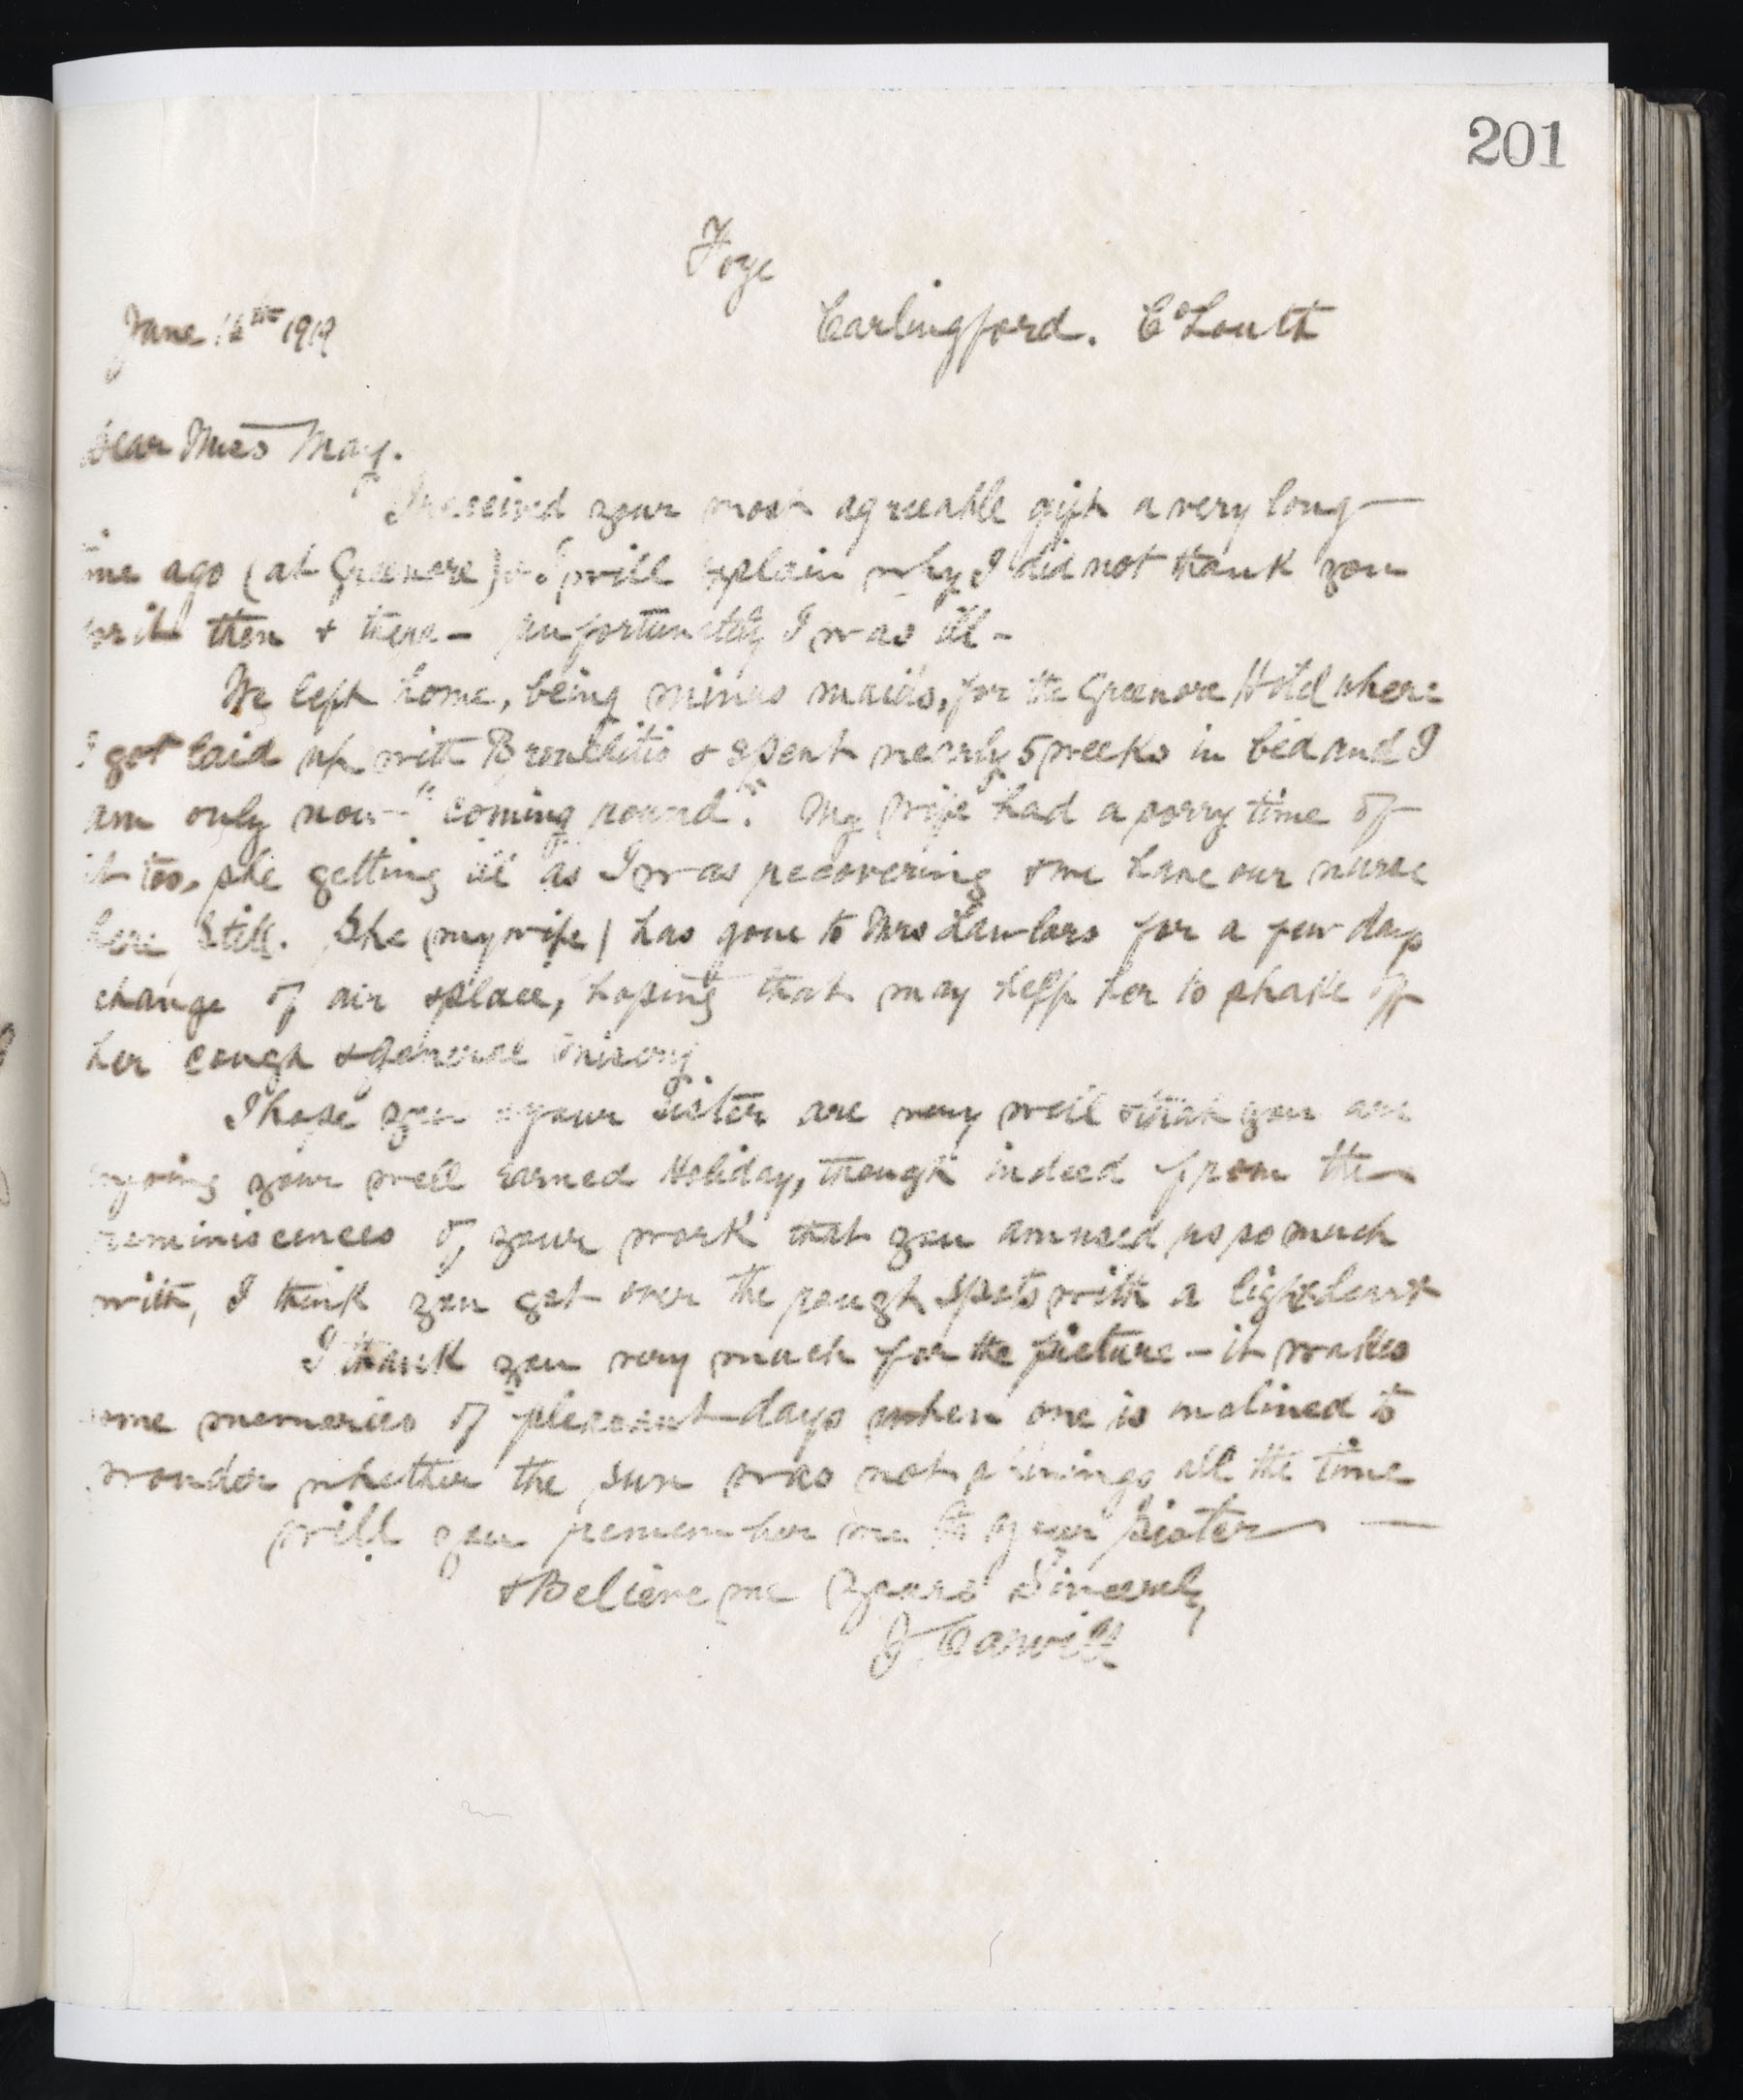 201
Foye
Carlingford. Co Louth
June 12th 1919
Dear Miss May.
I received your most agreeable gift a very long
time ago (at Greenore) & I will explain why I did not thank you
for it then & there - unfortunately I was ill -
We left home, being minus maids, for the Greenore Hotel where
I got laid up with Bronchitis & spent nearly 5 weeks in bed and I
am only now "coming round". My wife had a sorry time of
it too, she getting ill as I was recovering & we have our nurse
here still. She (my wife) has gone to Mrs Lawlors for a few days
change of air & place, hoping that may help her to shake off
her cough & general misery.
I hope you & your sister are very well & that you are
enjoying your well earned Holiday, though indeed from the
reminiscences of your work that you amused us so much
with, I think you get over the rough spots with a light heart
I thank you very much for the picture - it wakes
some memories of pleasant days when one is inclined to
wonder whether the sun was not shining all the time
will you remember me to your Sister —
& Believe me Yours Sincerely
J Carvill